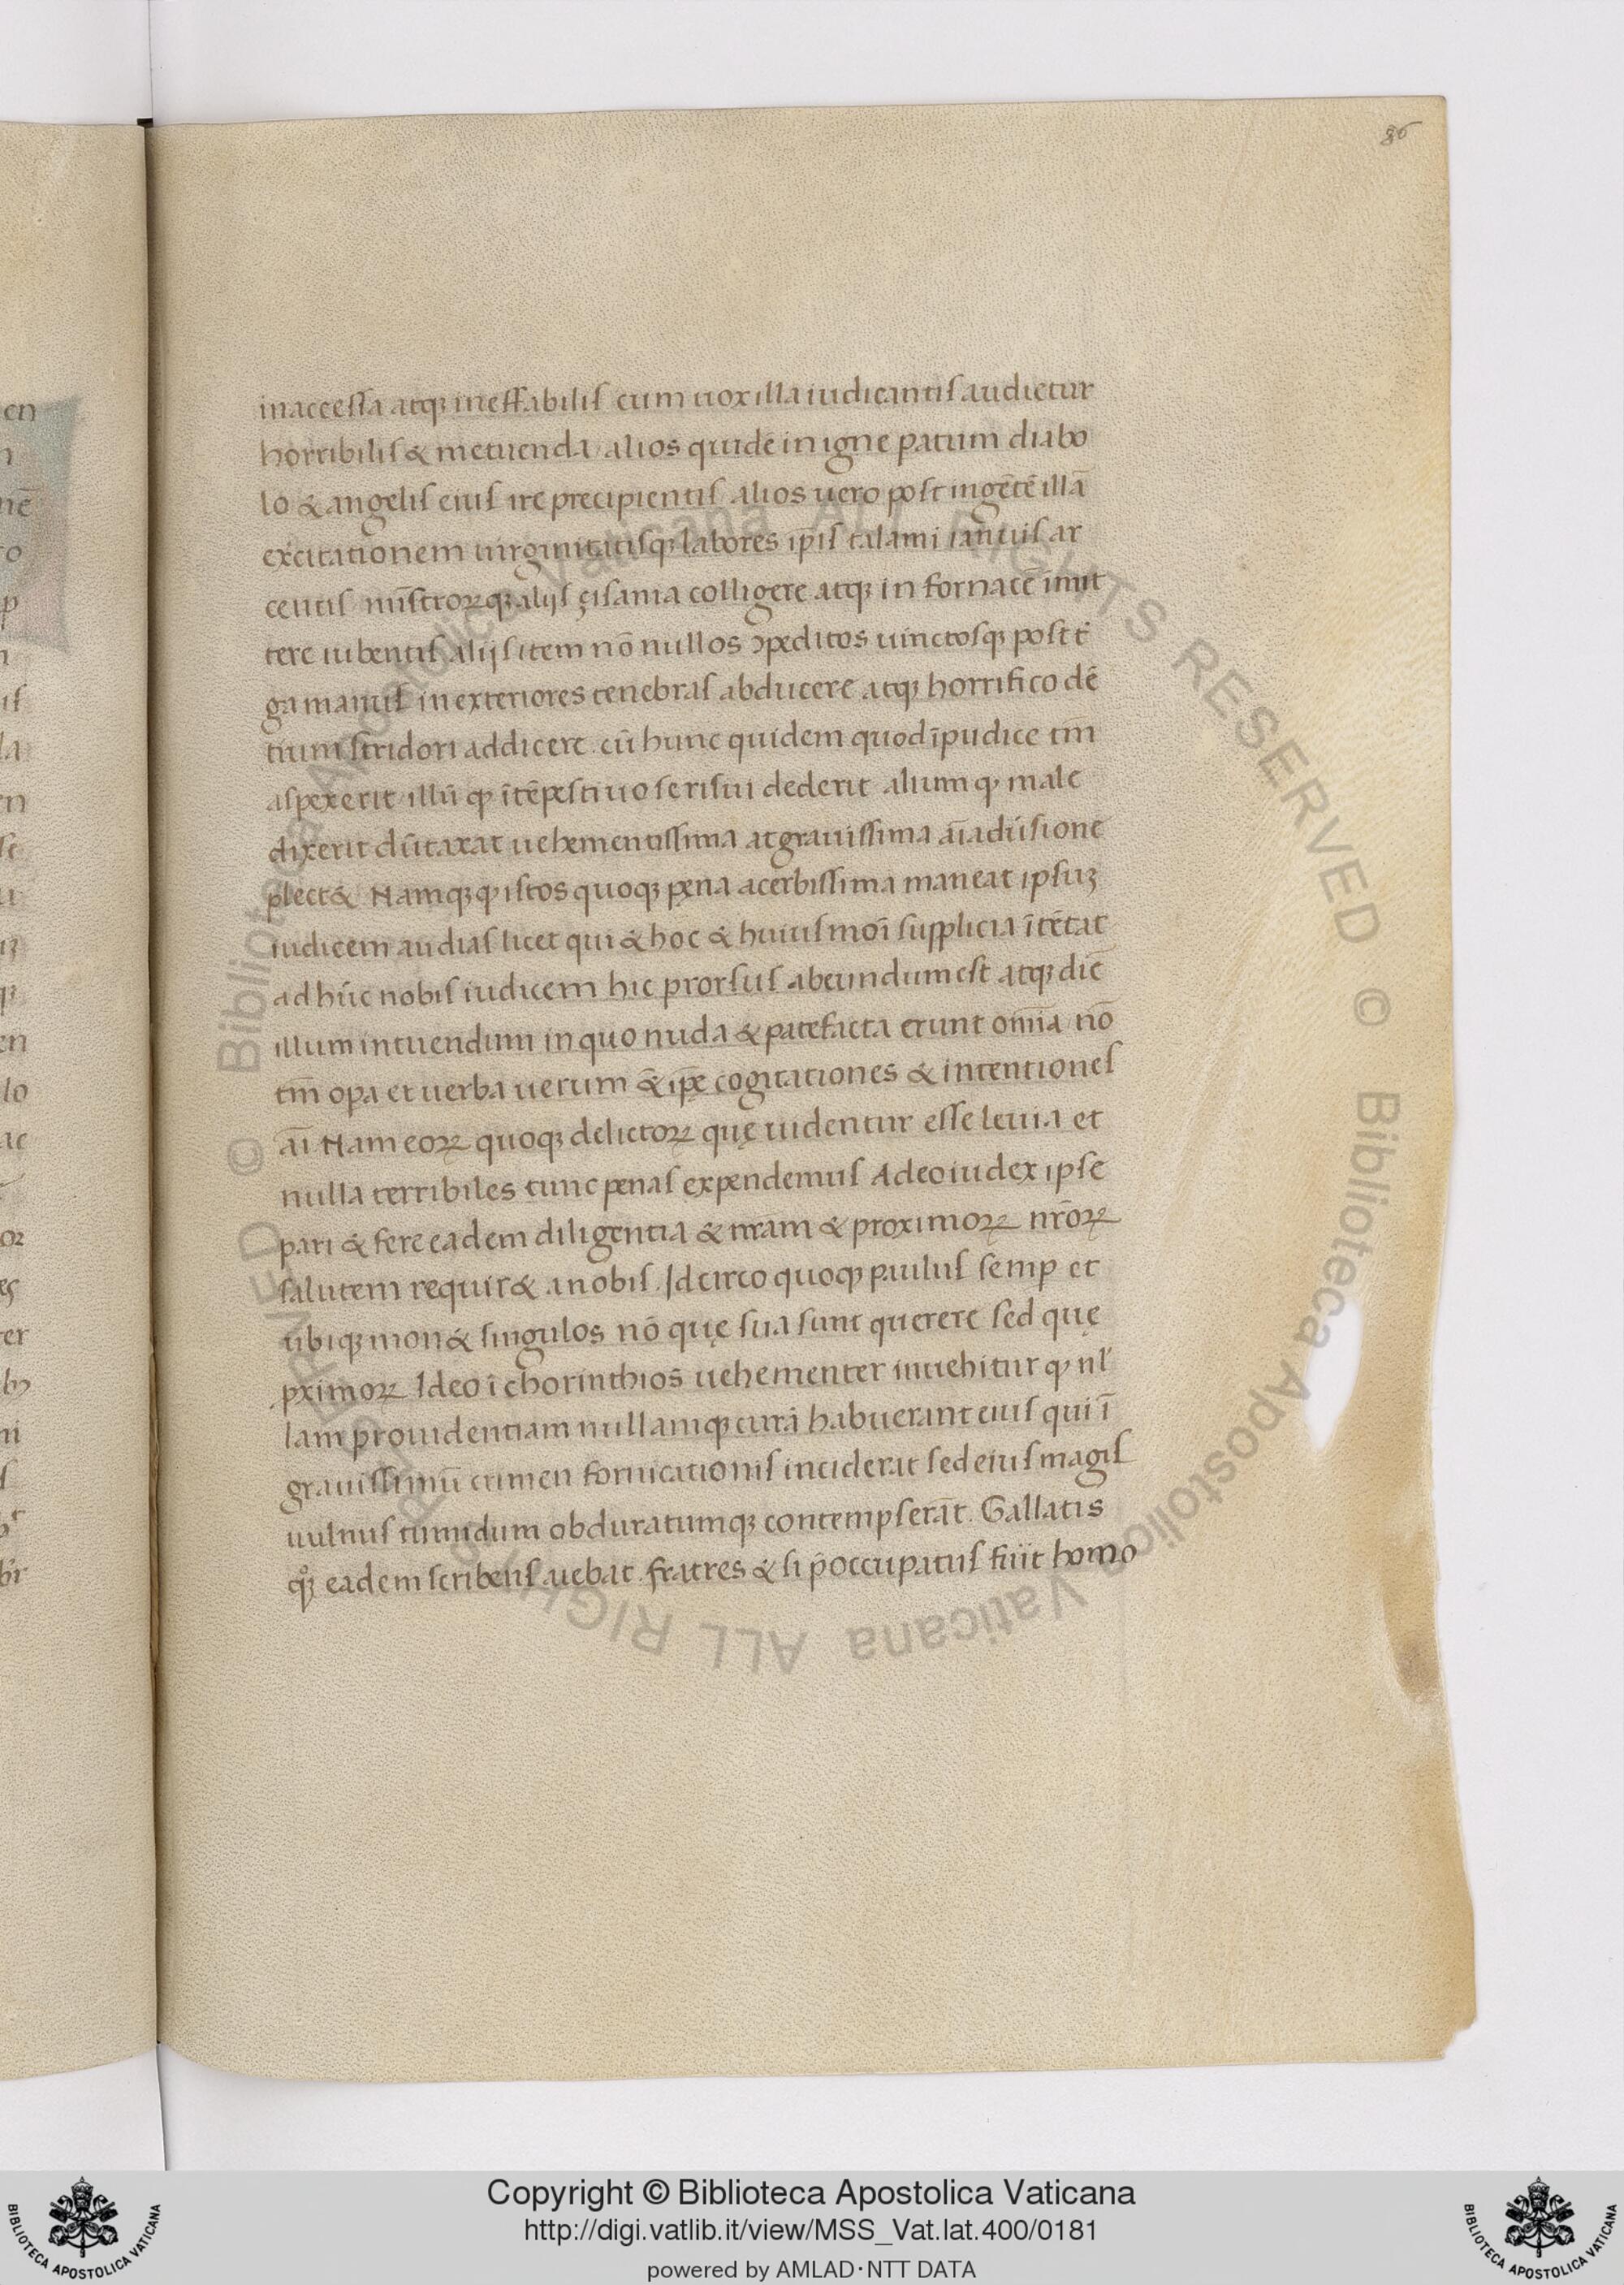 86
inaccessa atqꝫ ineffabilis cum uox illa iudicantis audietur
horribilis & metuenda alios quidē in igne patum diabo
lo & angelis eius ire precipientis alios uero post ingētē illā
excitationem uirginitatisqꝫ labores ip̄is talami ianuis ar
centis mīstroꝝqꝫ alijs çisania colligere atqꝫ in fornacē īmit
tere iubentis alijs item nō nullos ꝯpeditos uinctosqꝫ post t
ga manus in exteriores tenebras abducere atqꝫ horrifico dē
tium stridori addicere cū hunc quidem quod īpudice tm̄
aspexerit illū ꝙ ītēpestiuo se risui dederit alium ꝙ male
dixerit dūtaxat uehementissima at grauissima aīaduersione
plect& Namqꝫ ꝙ istos quoqꝫ pęna acerbissima maneat ipsuꝫ
iudicem audias licet qui & hoc & huiusmōi supplicia ītētat
ad hūc nobis iudicem hic prorsus abeundum est atqꝫ diē
illum intuendum in quo nuda & patefacta erunt om̄ia nō
tm̄ opa et uerba uerum & ip̄ę cogitationes & intentiones
aī Nam eoꝝ quoqꝫ delictoꝝ quę uidentur esse leuia et
nulla terribiles tunc penas expendemus Adeo iudex ipse
pari & fere eadem diligentia & nr̄am & proximoꝝ nr̄oꝝ
salutem requir& a nobis. Idcirco quoqꝫ paulus semꝑ et
ubiqꝫ mon& singulos nō quę sua sunt querere sed quę
ꝓximoꝝ Ideo ī chorinthios uehementer inuehitur ꝙ nl̓
lam prouidentiam nullamqꝫ curā habuerant eius qui ī
grauissimū crimen fornicationis inciderat sed eius magis
uulnus tumidum obduratumqꝫ contempserāt. Gallatis
qͦꝫ eadem scribens aiebat. fratres & si p̄occupatus fu̅it homo
Copyright © Biblioteca Apostolica Vaticana
http://digi.vatlib.it/view/MSS_Vat.lat.400/0181
powered by AMLAD·NTT DATA
BIBLIOTECA APOSTOLICA VATICANA
BIBLIOTECA APOSTOLICA VATICANA
© Biblioteca Apostolica Vaticana ALL RIGHTS RESERVED © Biblioteca Apostolica Vaticana ALL RIGHTS RESERVED